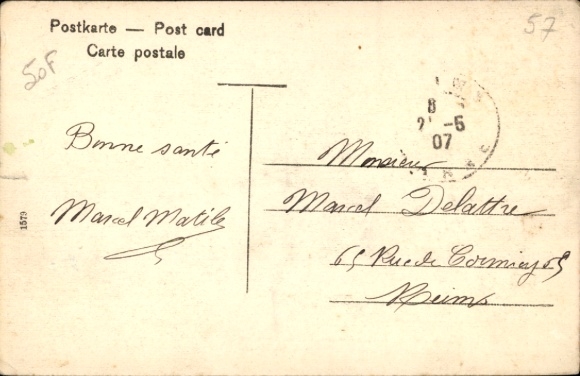 Postkarte — Post card
Carte postale
57
50F
8
2 -5
07
Bonne santé
Marcel Matile
1579
Monsieur
Marcel Delattre
65 Rue de Cormicy 65
Reims